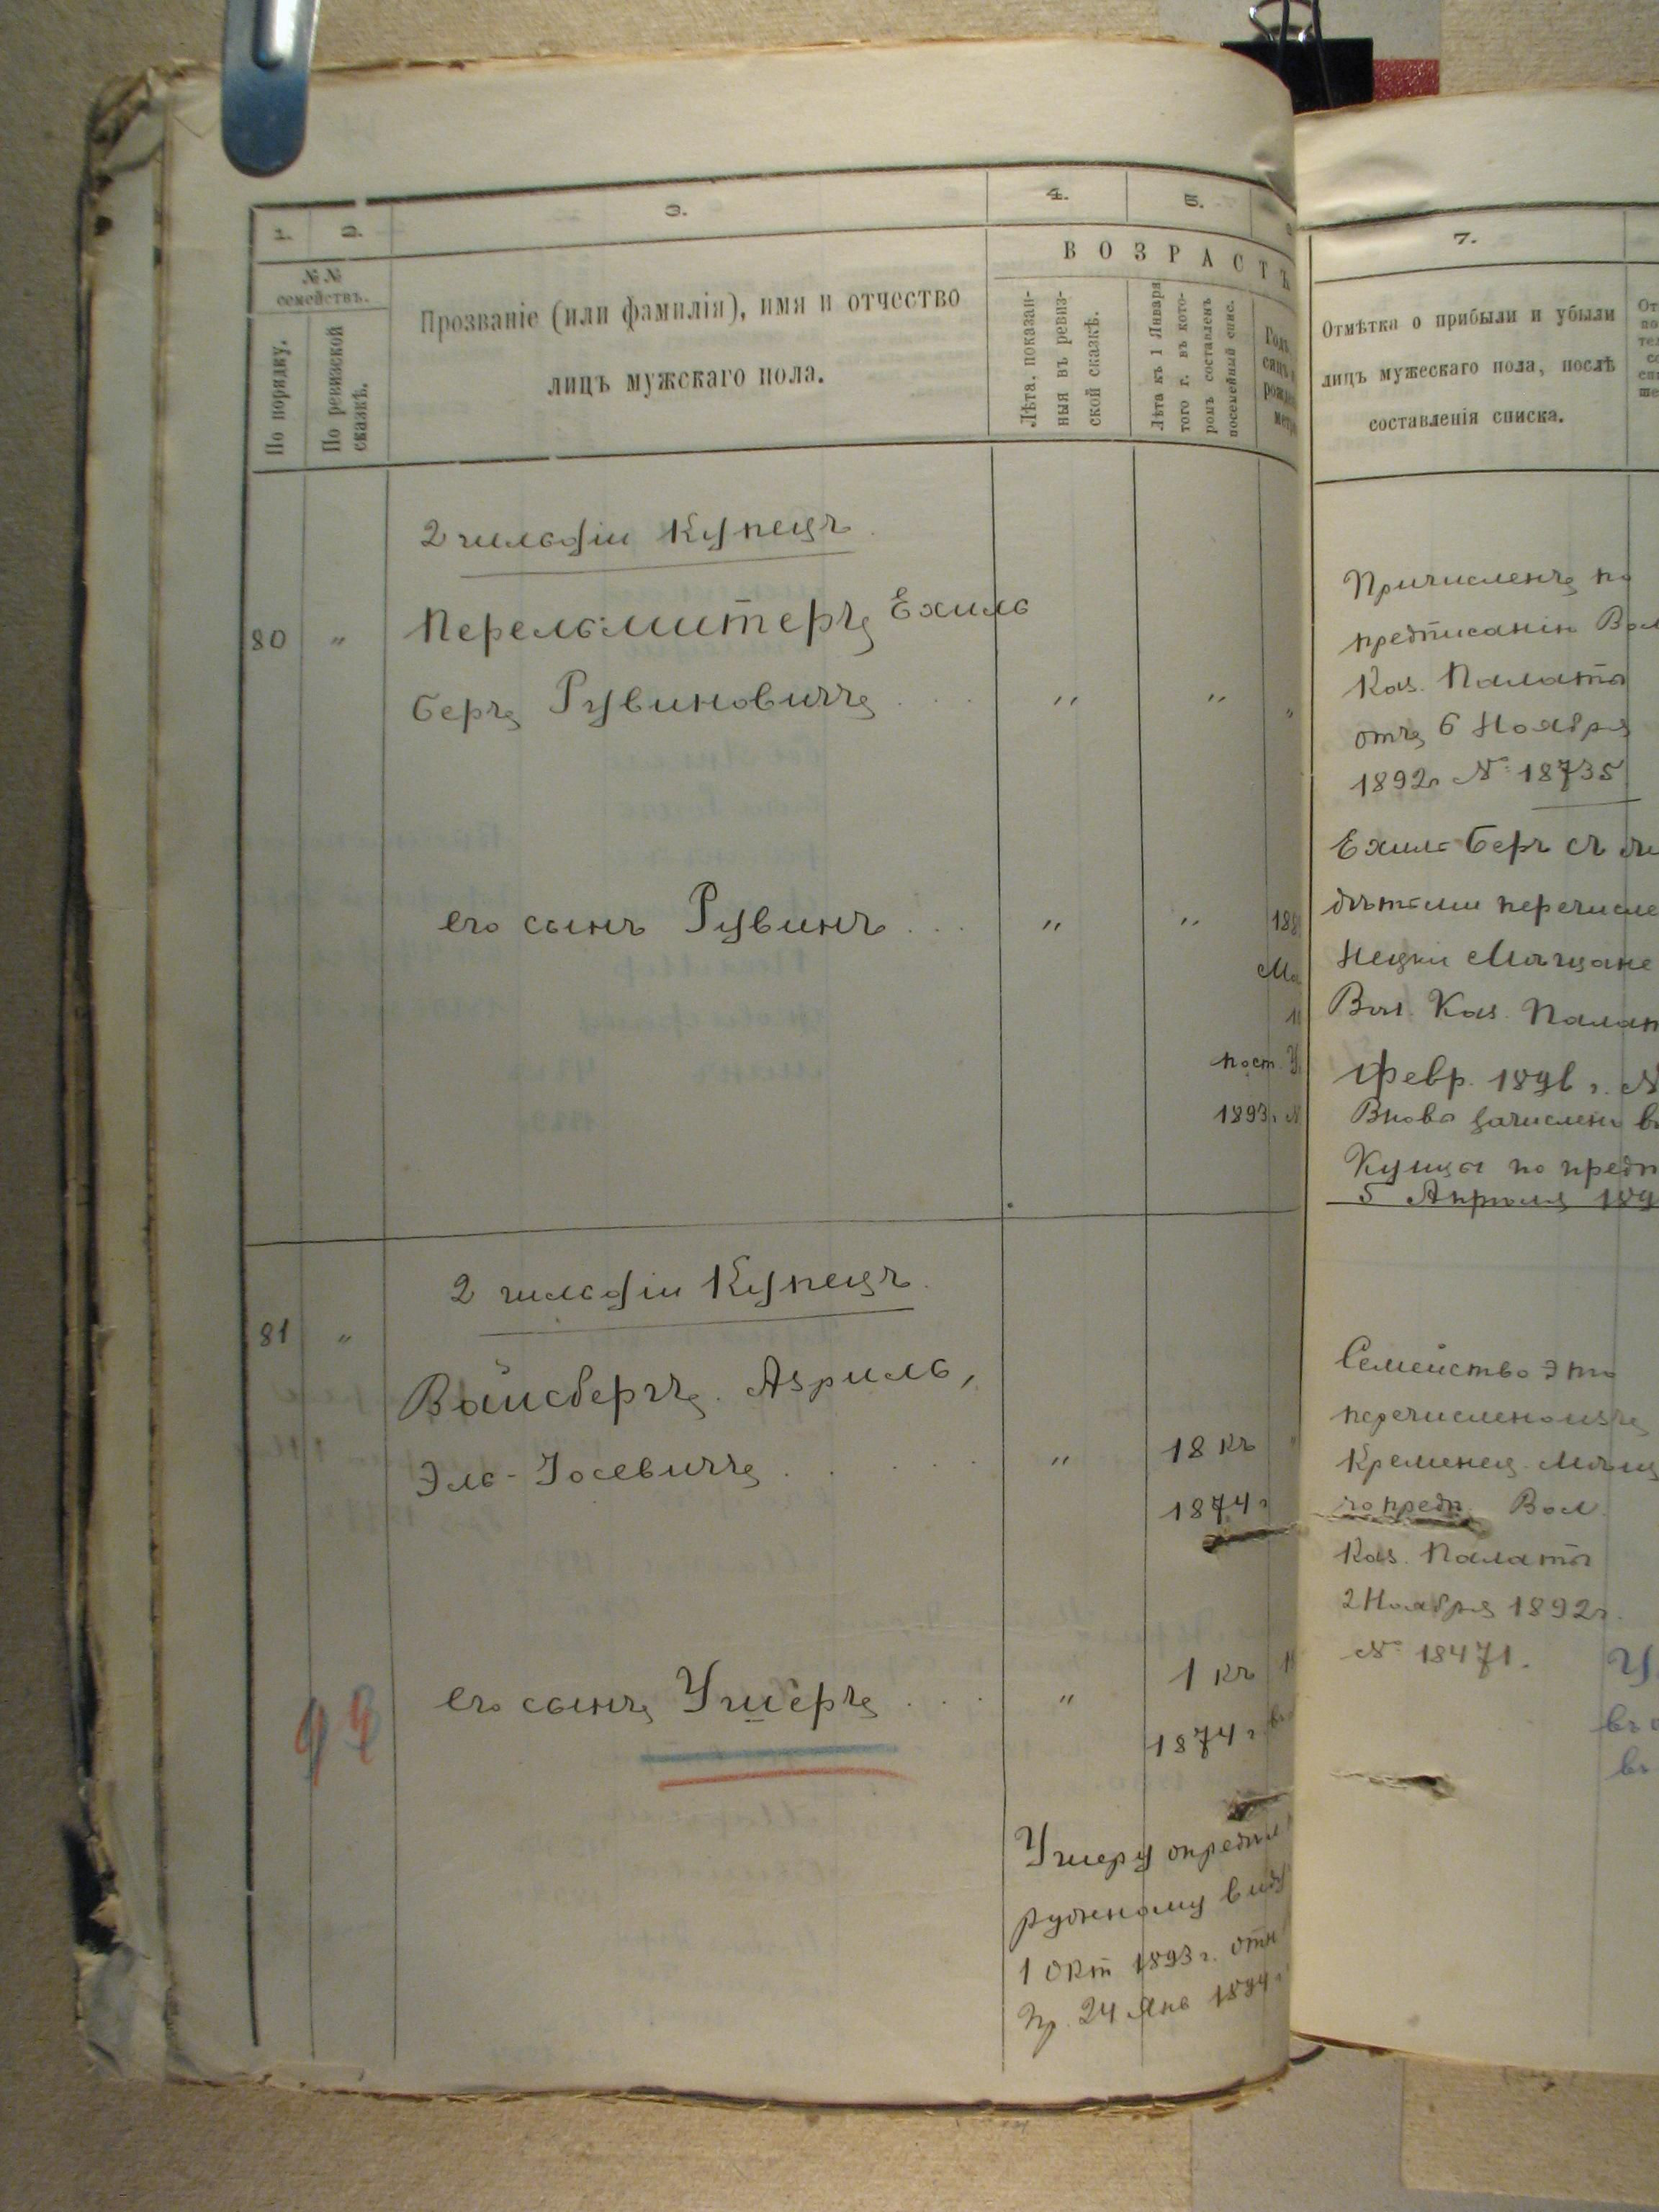 1.
2.
3.
4.
5.
№ №
семействъ.
По порядку.
По ревизской
сказкѣ.
Прозваніе (или фамилія), имя и отчество
лицъ мужскаго пола.
ВОЗРАСТЪ
Лѣта, показан-
ныя въ ревиз-
ской сказкѣ.
Лѣта къ 1 Января
того г. въ кото-
ромъ составленъ
посемейный спис.
2 гильдіи Купецъ.
80 " Перельмитеръ Ехиль
Беръ Рувиновичъ . . . " "
его сынъ Рувинъ . . . " " 188
пост.
1893 г. №
2 гильдіи Купецъ.
81 "
Вайсбергъ Азриль,
Эль-Іосевичъ . . . . . " 18 къ
1874 г
его сынъ Ушеръ . . . " 1 къ
1874 г
Ушеру опредѣл
ружному виду
1 Окт 1893 г. отн
Пр. 24 Янв 1894 г
7.
Отмѣтка о прибыли и убыли
лицъ мужескаго пола, послѣ
составленія списка.
Причисленъ по
предписанію Вол
Каз. Палаты
отъ 6 Ноября
1892 г № 18735
Ехиль Беръ съ
дѣтьми перечисле
Мѣщане
Вол. Каз. Палат
Февр. 1896 г. №
Вновь зачислены въ
Купцы по предп
5 Апрѣля 189
Семейство это
перечислено изъ
Кременец. Мѣщ
по предп. Вол.
Каз. Палаты
2 Ноября 1892 г.
№ 18471.